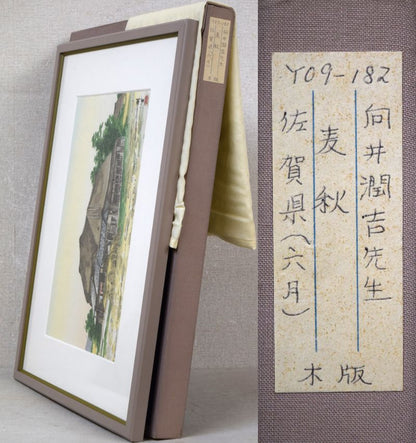 Y09-182
向井潤吉先生
麦秋
佐賀県(六月)
木版